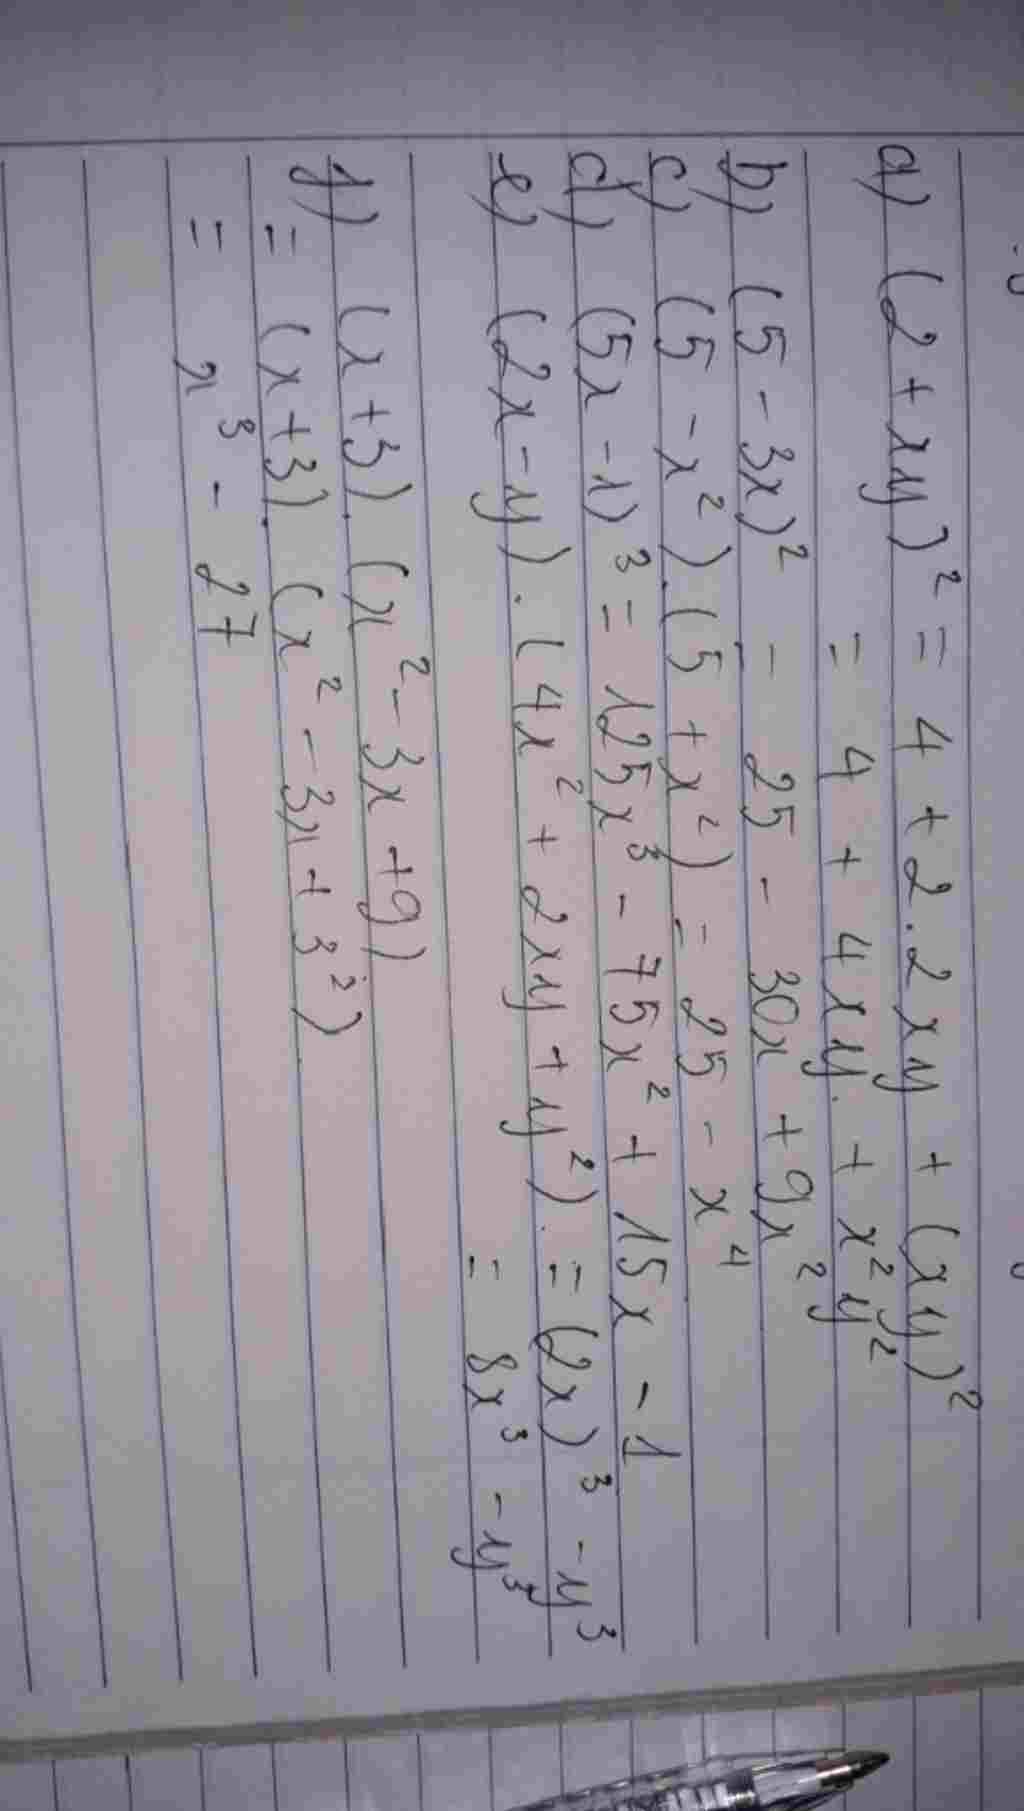 a) (2 + xy)² = 4 + 2.2xy + (xy)²
= 4 + 4xy + x²y²
b) (5 - 3x)² = 25 - 30x + 9x²
c) (5 - x²).(5 + x²) = 25 - x⁴
d) (5x - 1)³ = 125x³ - 75x² + 15x - 1
e) (2x - y).(4x² + 2xy + y²). = (2x)³ - y³
= 8x³ - y³
f) (x + 3).(x² - 3x + 9)
= (x + 3).(x² - 3x + 3²)
= x³ - 27